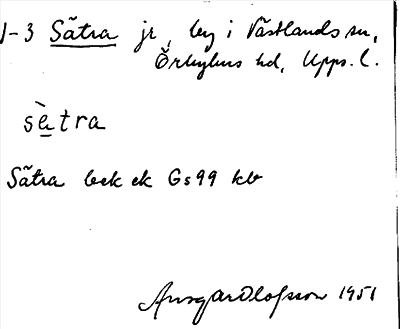 1-3 Sätra jr, by i Västlands sn,
Örbyhus hd, Upps. l.
sètra
Sätra bek ek Gs99 kb
Ansgar Olofsson 1951